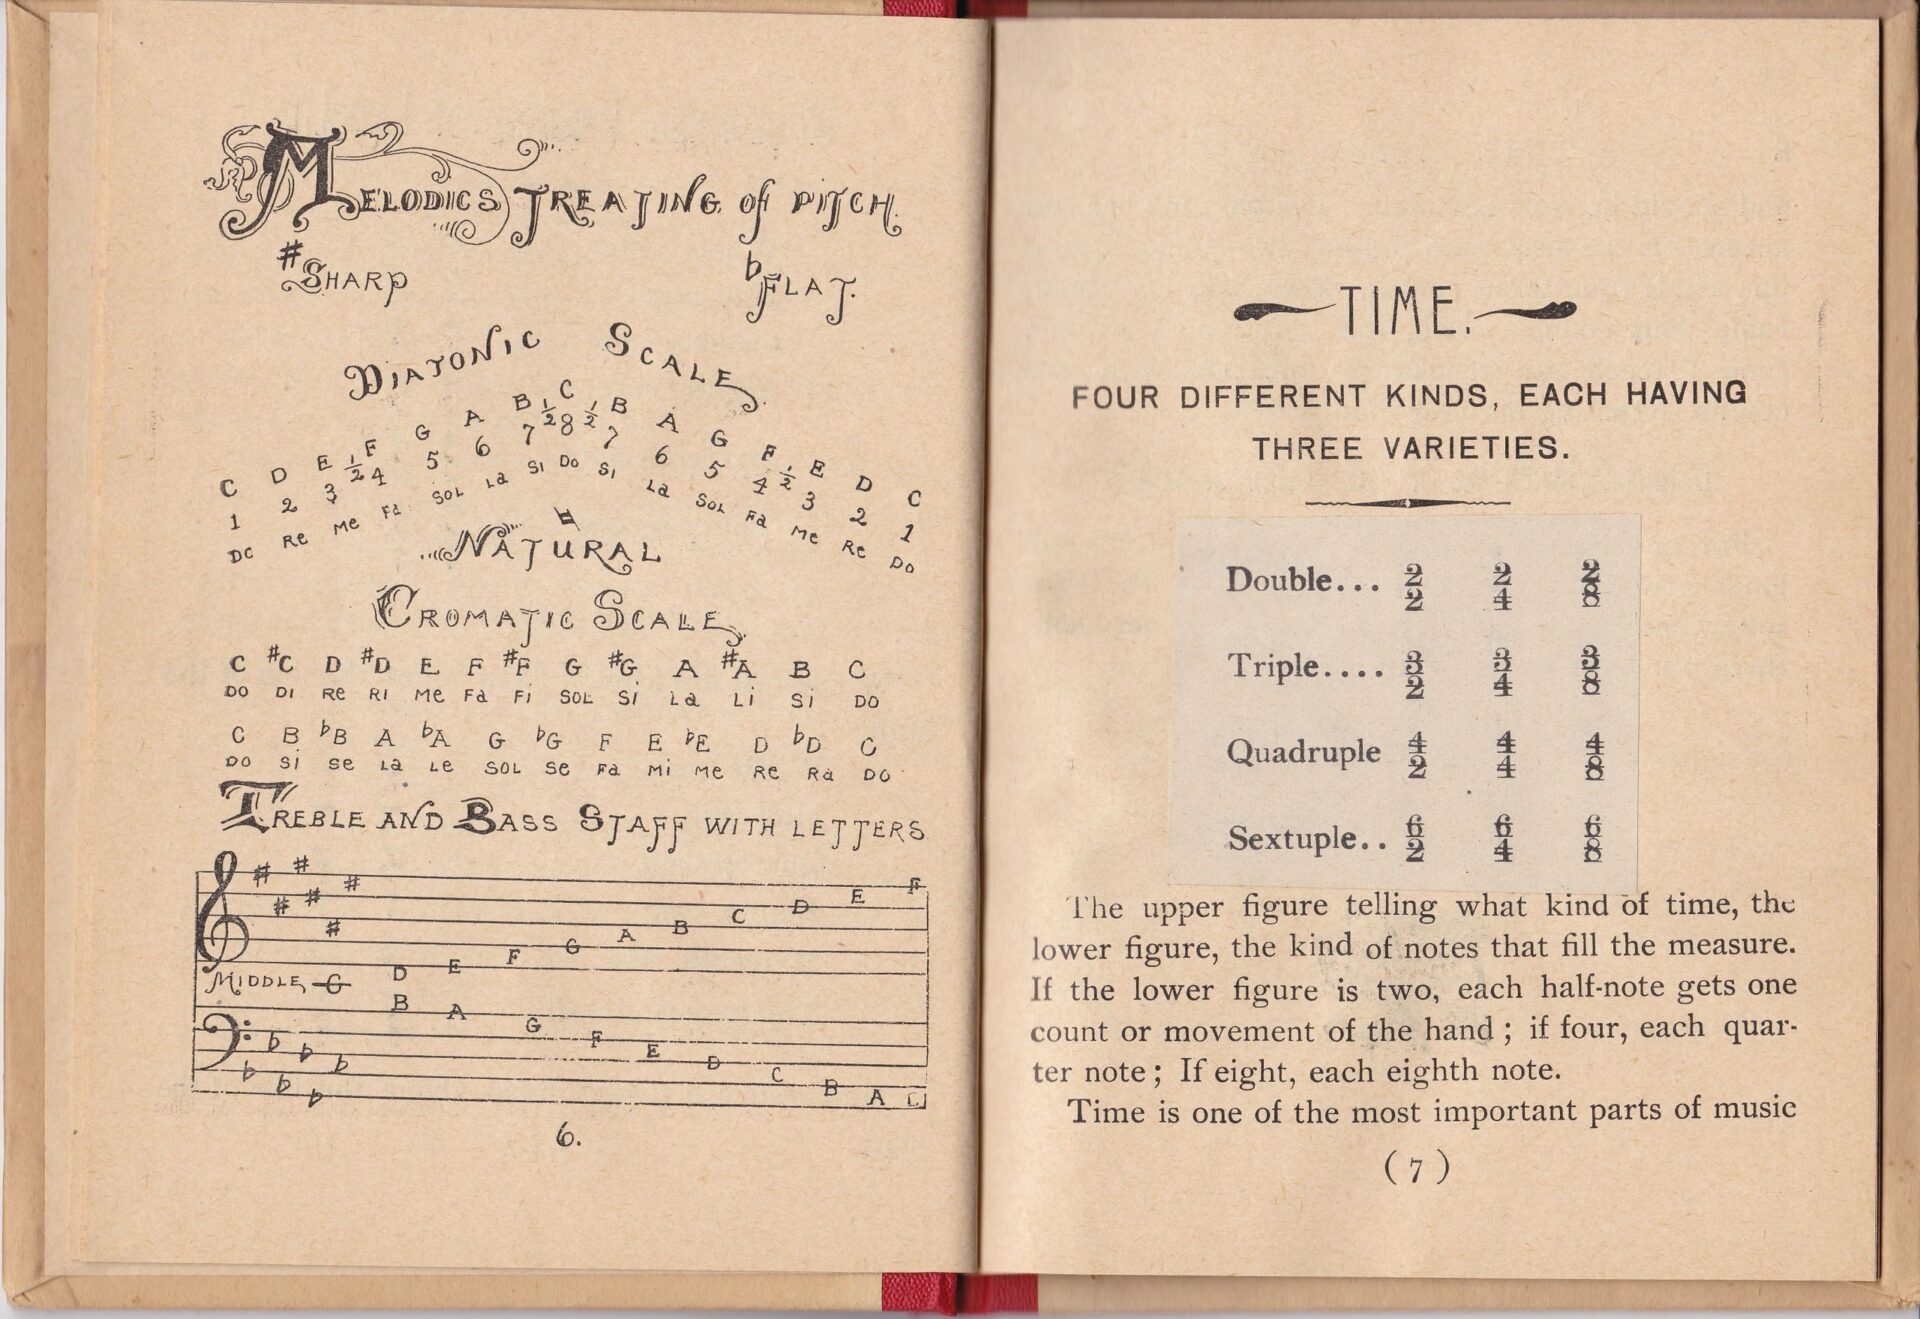 MELODICS TREATING of PITCH.
♯SHARP ♭FLAT.
DIATONIC SCALE
C D E ½ F G A B ½ C ½ B A G F ½ E D C
1 2 3 4 5 6 7 8 7 6 5 4 3 2 1
DO Re Me Fa SOL La SI DO SI La SOL Fa Me Re DO
♮
NATURAL
CROMATIC SCALE
C ♯C D ♯D E F ♯F G ♯G A ♯A B C
DO DI Re RI Me Fa Fi SOL Si La Li Si DO
C B ♭B A ♭A G ♭G F E ♭E D ♭D C
DO Si Se La Le SOL Se Fa Mi Me Re Ra DO
TREBLE AND BASS STAFF WITH LETTERS
D E F G A B C D E F
MIDDLE C
B A G F E D C B A
6.
TIME.
FOUR DIFFERENT KINDS, EACH HAVING
THREE VARIETIES.
Double... 2/2 2/4 2/8
Triple.... 3/2 3/4 3/8
Quadruple 4/2 4/4 4/8
Sextuple.. 6/2 6/4 6/8
The upper figure telling what kind of time, the
lower figure, the kind of notes that fill the measure.
If the lower figure is two, each half-note gets one
count or movement of the hand ; if four, each quar-
ter note ; If eight, each eighth note.
Time is one of the most important parts of music
( 7 )